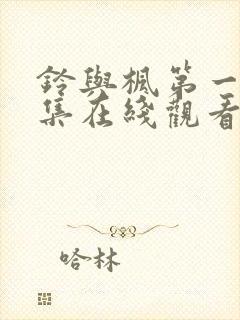 鈴與楓第一
集在綫觀看
哈林